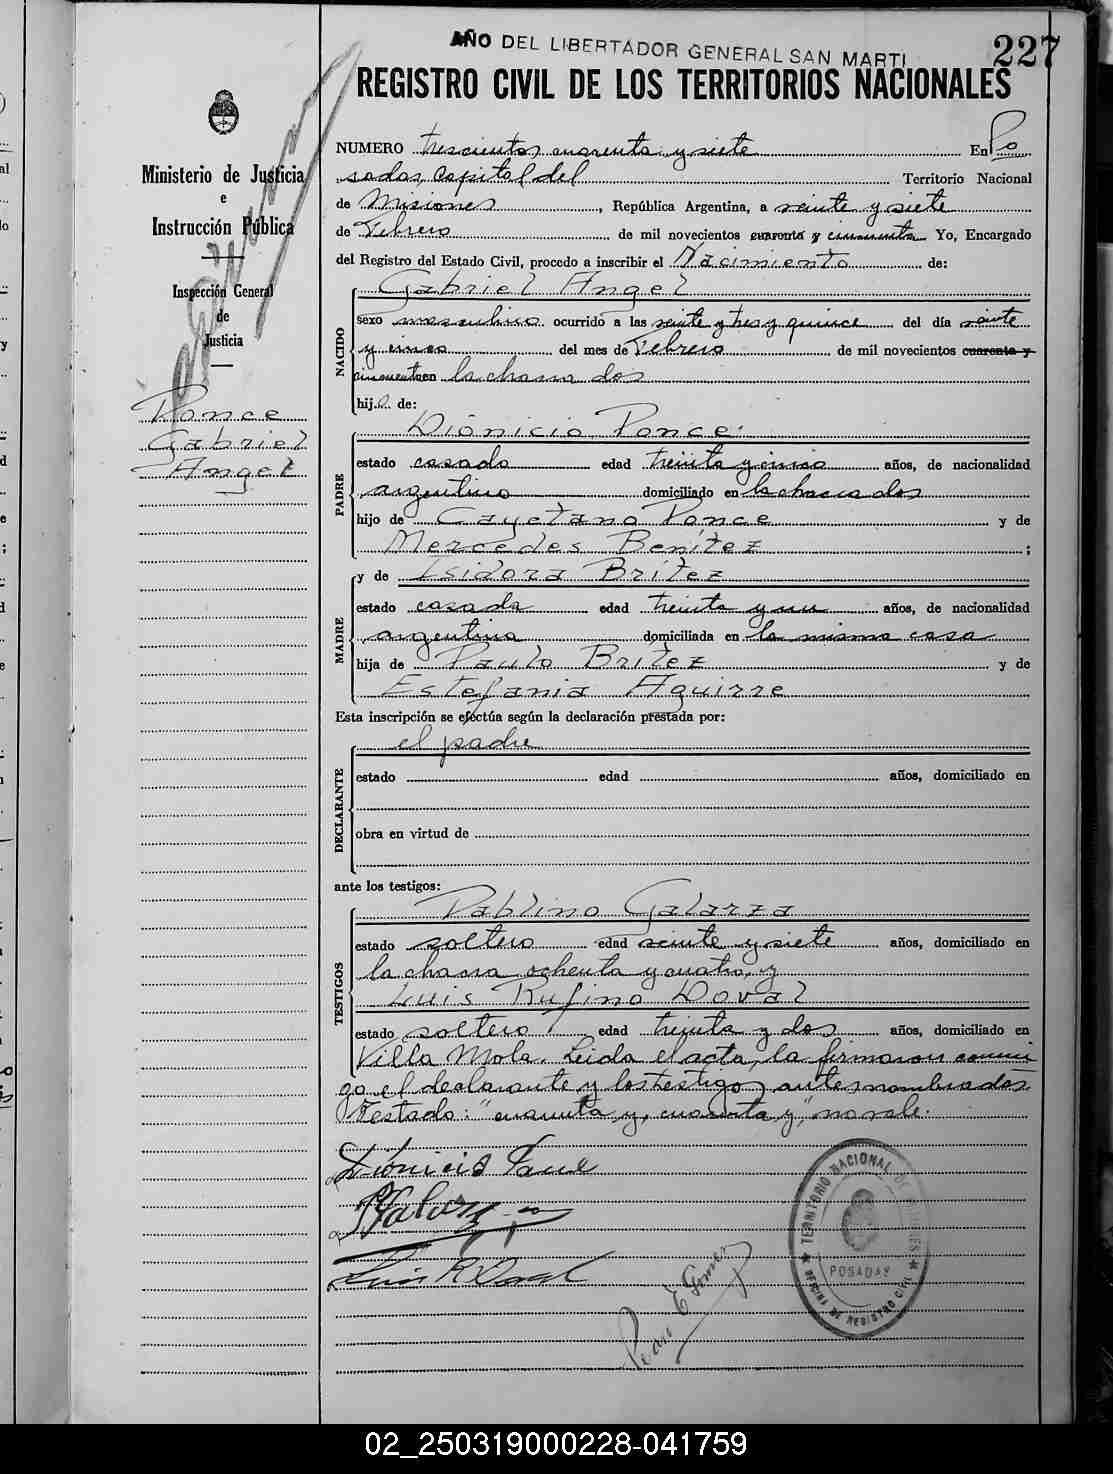 AÑO DEL LIBERTADOR GENERAL SAN MARTI
227
REGISTRO CIVIL DE LOS TERRITORIOS NACIONALES
Ministerio de Justicia
e
Instrucción Pública
Inspección General
de
Justicia
Ponce
Gabriel
Angel
NUMERO trescientos cuarenta y siete En Po
sadas, Capital del Territorio Nacional
de Misiones, República Argentina, a veinte y siete
de Febrero de mil novecientos cuarenta y cincuenta Yo, Encargado
del Registro del Estado Civil, procedo a inscribir el Nacimiento de:
NACIDO
Gabriel Angel
sexo masculino ocurrido a las veinte y tres y quince del día veinte
y cinco del mes de Febrero de mil novecientos cuarenta y
cincuenta en la chacra dos
hijo de:
PADRE
Dionicio Ponce
estado casado edad treinta y cinco años, de nacionalidad
argentino domiciliado en la chacra dos
hijo de Cayetano Ponce y de
Mercedes Benítez ;
MADRE
y de Isidora Brítez
estado casada edad treinta y un años, de nacionalidad
argentina domiciliada en la misma casa
hija de Paulo Brítez y de
Estefania Aguirre
Esta inscripción se efectúa según la declaración prestada por:
DECLARANTE
el padre
estado edad años, domiciliado en
obra en virtud de
ante los testigos:
TESTIGOS
Pablino Galarza
estado soltero edad veinte y siete años, domiciliado en
la chacra ochenta y cuatro, y
Luis Rufino Doval
estado soltero edad treinta y dos años, domiciliado en
Villa Mola. Leida el acta, la firmaron conmi
go el declarante y los testigos antes nombrados.
Testado: "cuarenta y, cuarenta y," no vale.
Dionicio Ponce
Luis R Doval
TERRITORIO NACIONAL DE MISIONES
POSADAS
OFICINA DE REGISTRO CIVIL
02_250319000228-041759